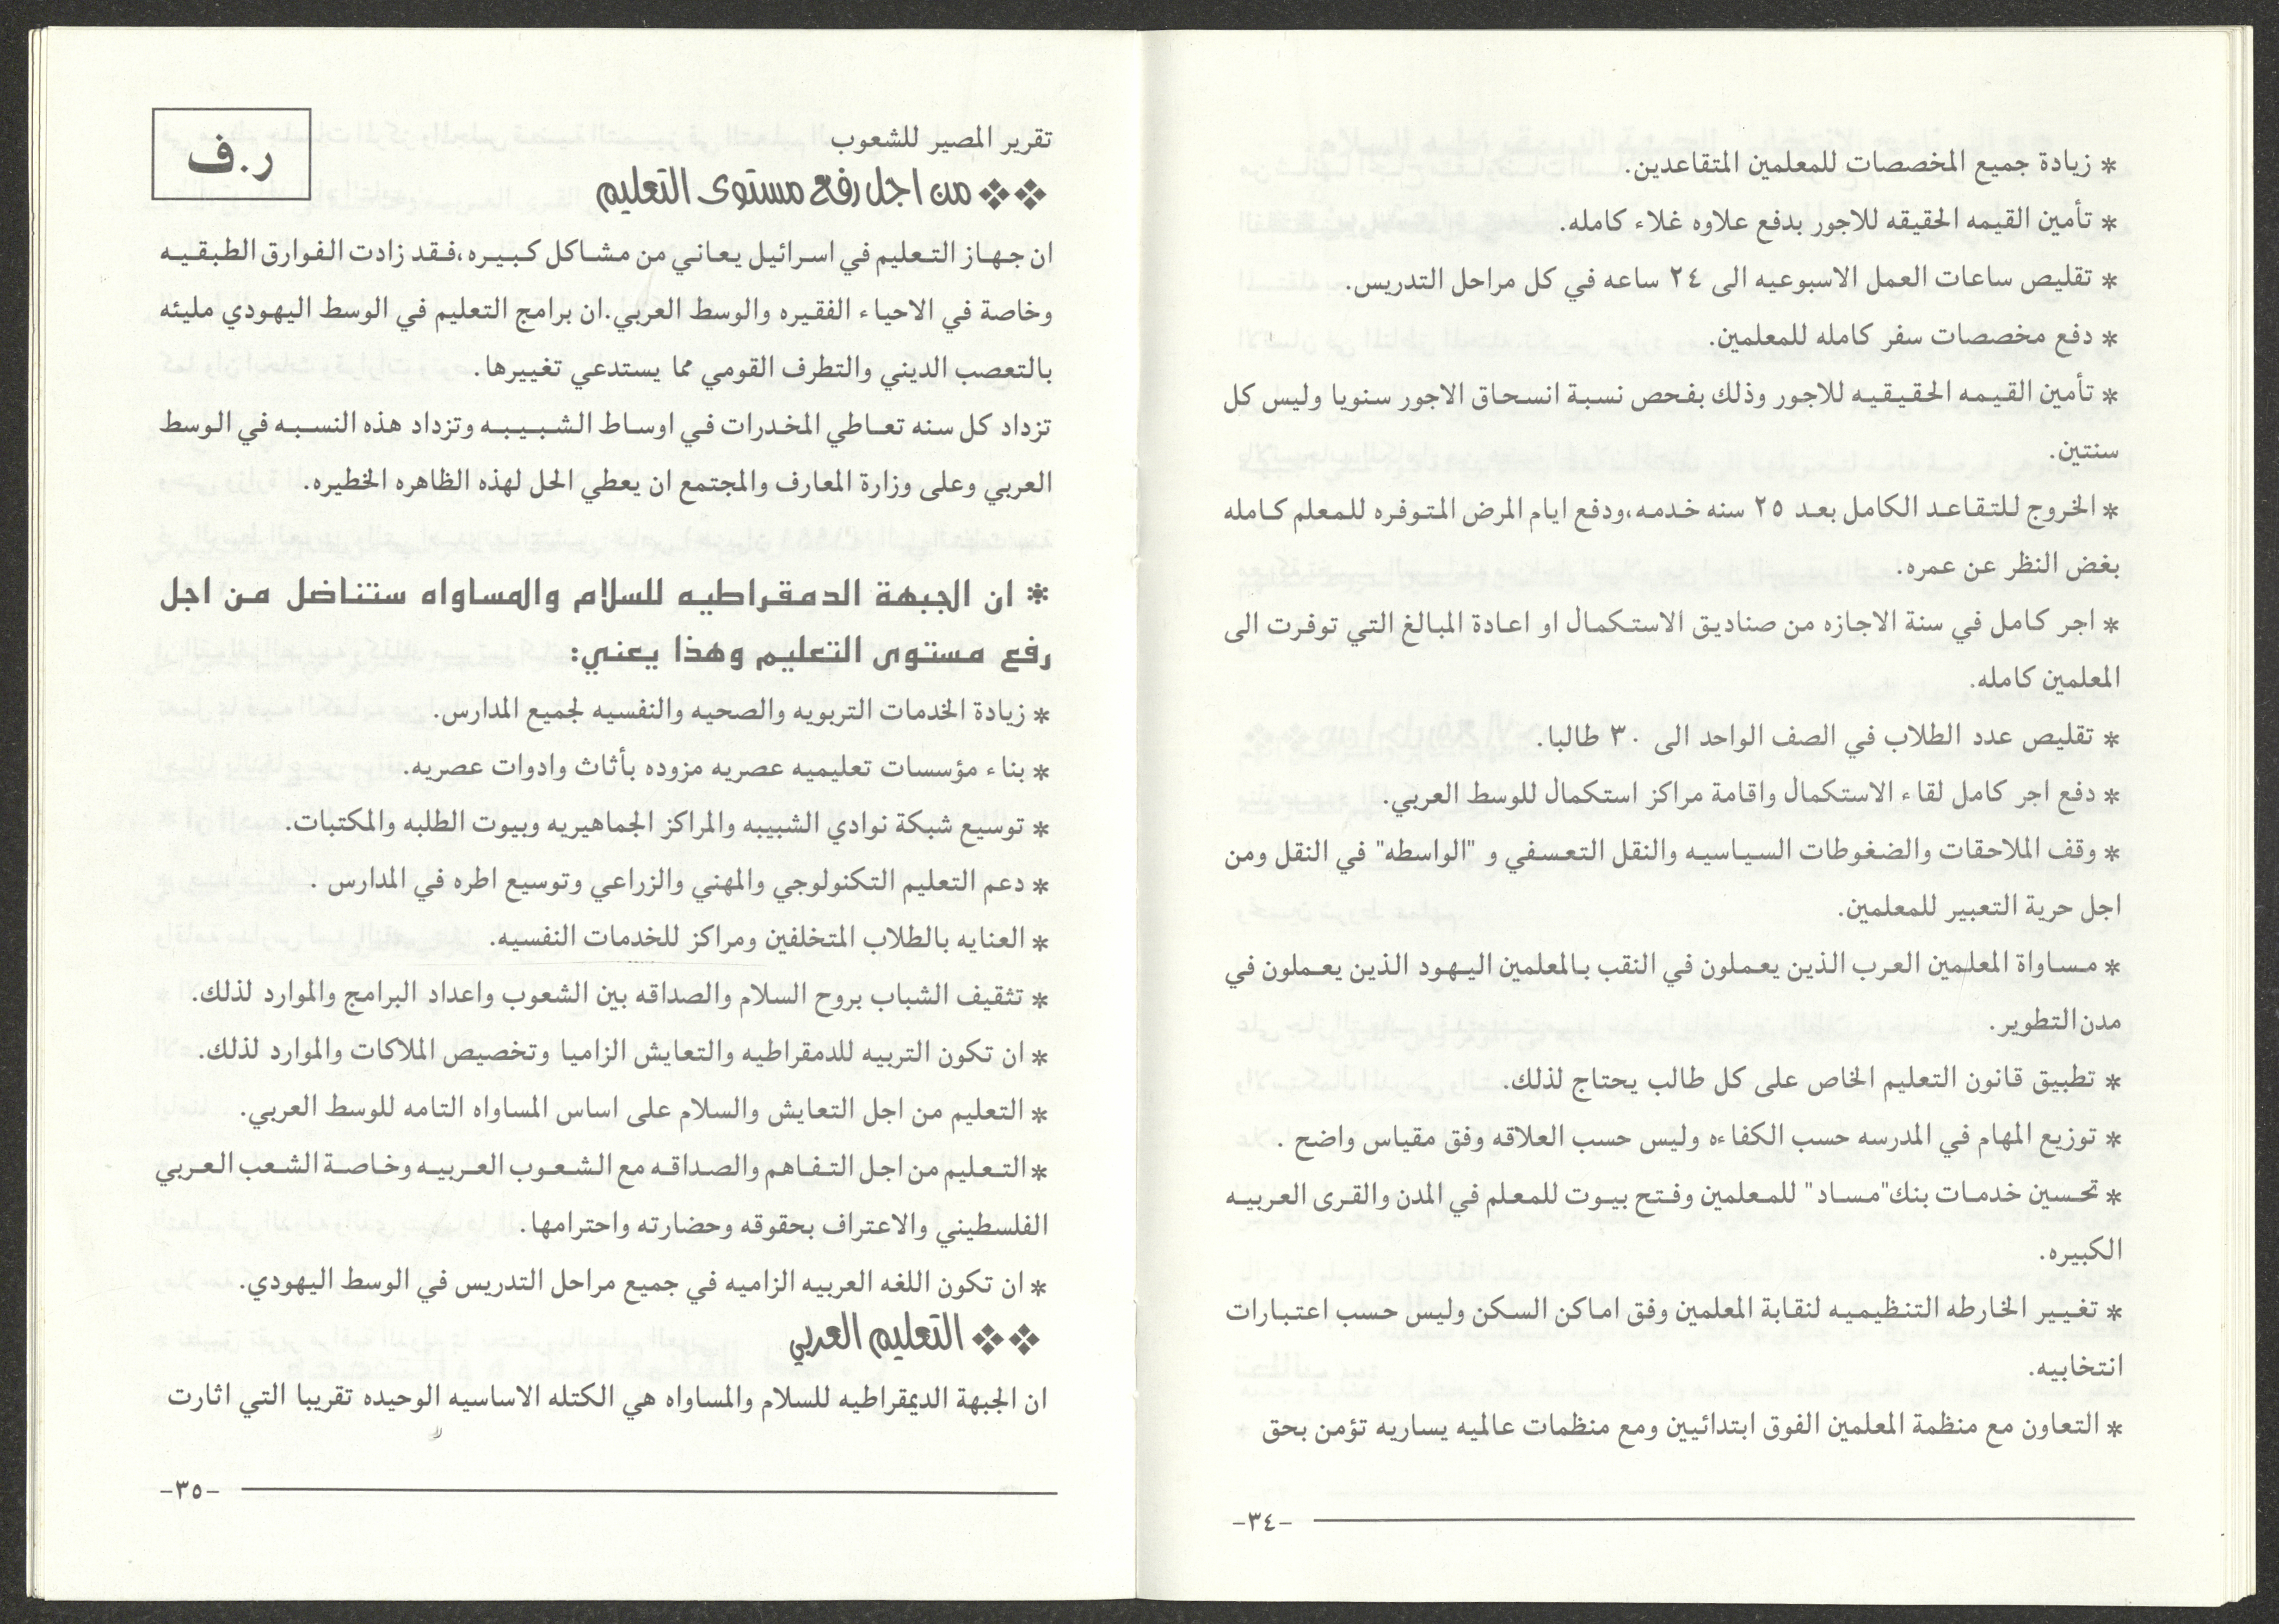 * زيادة جميع المخصصات للمعلمين المتقاعدين.
* تأمين القيمه الحقيقه للاجور بدفع علاوه غلاء كامله.
* تقليص ساعات العمل الاسبوعيه الى ٢٤ ساعه في كل مراحل التدريس.
* دفع مخصصات سفر كامله للمعلمين.
* تأمين القيمه الحقيقيه للاجور وذلك بفحص نسبة انسحاق الاجور سنويا وليس كل
سنتين.
* الخروج للتقاعد الكامل بعد ٢٥ سنه خدمه،ودفع ايام المرض المتوفره للمعلم كامله
بغض النظر عن عمره.
* اجر كامل في سنة الاجازه من صناديق الاستكمال او اعادة المبالغ التي توفرت الى
المعلمين كامله.
* تقليص عدد الطلاب في الصف الواحد الى ٣٠ طالبا.
* دفع اجر كامل لقاء الاستكمال واقامة مراكز استكمال للوسط العربي.
* وقف الملاحقات والضغوطات السياسيه والنقل التعسفي و "الواسطه" في النقل ومن
اجل حرية التعبير للمعلمين.
* مساواة المعلمين العرب الذين يعملون في النقب بالمعلمين اليهود الذين يعملون في
مدن التطوير.
* تطبيق قانون التعليم الخاص على كل طالب يحتاج لذلك.
* توزيع المهام في المدرسه حسب الكفاءه وليس حسب العلاقه وفق مقياس واضح .
* تحسين خدمات بنك"مساد" للمعلمين وفتح بيوت للمعلم في المدن والقرى العربيه
الكبيره.
* تغيير الخارطه التنظيميه لنقابة المعلمين وفق اماكن السكن وليس حسب اعتبارات
انتخابيه.
* التعاون مع منظمة المعلمين الفوق ابتدائيين ومع منظمات عالميه يساريه تؤمن بحق
-٣٤-
ر.ف
تقرير المصير للشعوب
❖❖ من اجل رفع مستوى التعليم
ان جهاز التعليم في اسرائيل يعاني من مشاكل كبيره،فقد زادت الفوارق الطبقيه
وخاصة في الاحياء الفقيره والوسط العربي.ان برامج التعليم في الوسط اليهودي مليئه
بالتعصب الديني والتطرف القومي مما يستدعي تغييرها.
تزداد كل سنه تعاطي المخدرات في اوساط الشبيبه وتزداد هذه النسبه في الوسط
العربي وعلى وزارة المعارف والمجتمع ان يعطي الحل لهذه الظاهره الخطيره.
* ان الجبهة الدمقراطيه للسلام والمساواه ستناضل من اجل
رفع مستوى التعليم وهذا يعني:
* زيادة الخدمات التربويه والصحيه والنفسيه لجميع المدارس.
* بناء مؤسسات تعليميه عصريه مزوده بأثاث وادوات عصريه.
* توسيع شبكة نوادي الشبيبه والمراكز الجماهيريه وبيوت الطلبه والمكتبات.
* دعم التعليم التكنولوجي والمهني والزراعي وتوسيع اطره في المدارس .
* العنايه بالطلاب المتخلفين ومراكز للخدمات النفسيه.
* تثقيف الشباب بروح السلام والصداقه بين الشعوب واعداد البرامج والموارد لذلك.
* ان تكون التربيه للدمقراطيه والتعايش الزاميا وتخصيص الملاكات والموارد لذلك.
* التعليم من اجل التعايش والسلام على اساس المساواه التامه للوسط العربي.
* التعليم من اجل التفاهم والصداقه مع الشعوب العربيه وخاصة الشعب العربي
الفلسطيني والاعتراف بحقوقه وحضارته واحترامها.
* ان تكون اللغه العربيه الزاميه في جميع مراحل التدريس في الوسط اليهودي.
❖❖ التعليم العربي
ان الجبهة الديمقراطيه للسلام والمساواه هي الكتله الاساسيه الوحيده تقريبا التي اثارت
-٣٥-